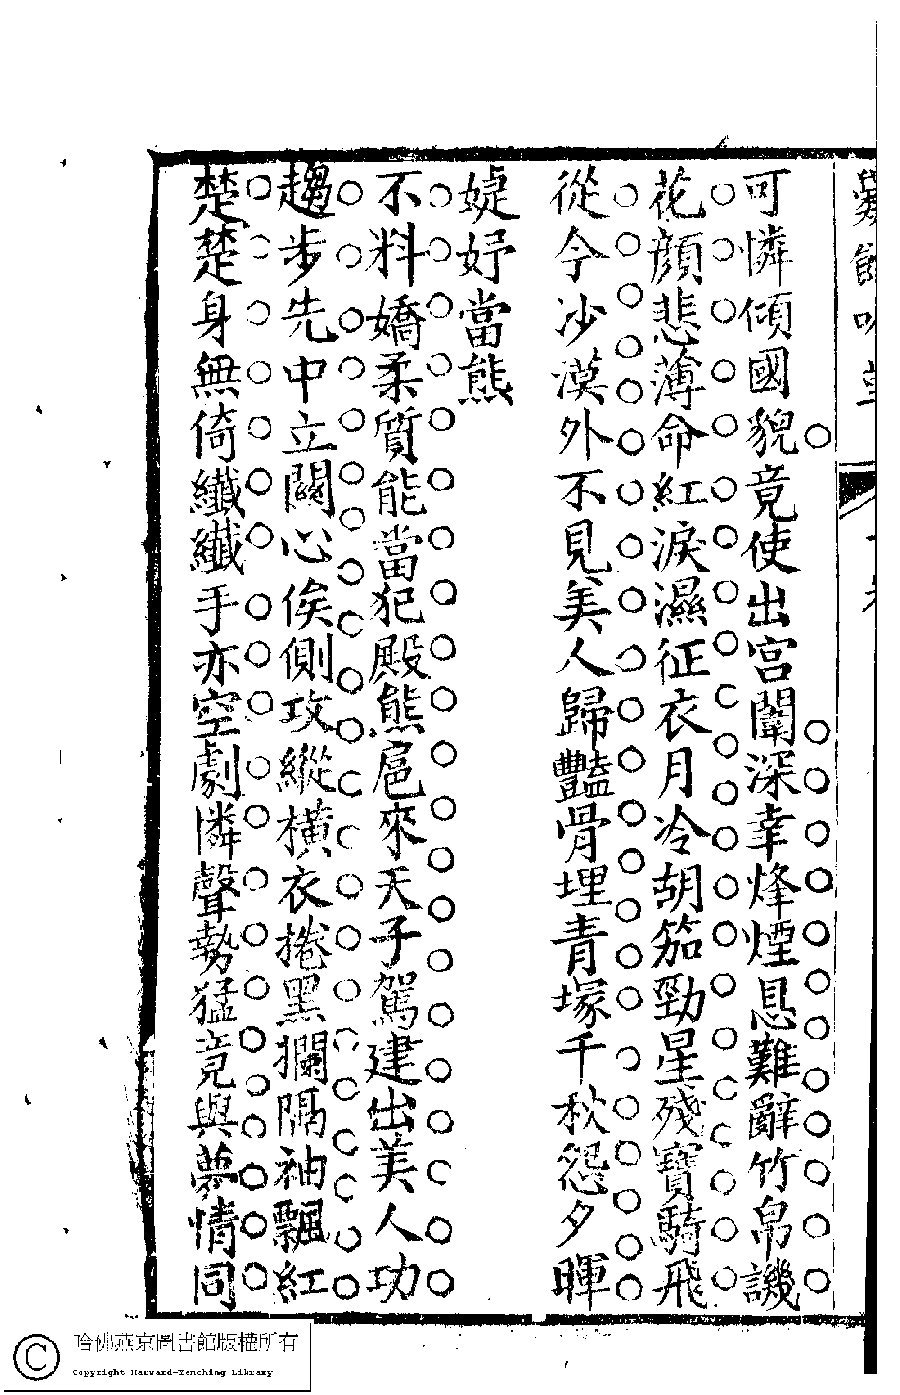 可憐傾國貌竟使出宮闈深幸烽煙息難辭竹帛譏
花顏悲薄命紅淚濕征衣月冷胡笳勁星殘寶騎飛
從今沙漠外不見美人歸豔骨埋青塚千秋怨夕暉
婕妤當熊
不料嬌柔質能當犯殿熊扈來天子駕建出美人功
趨步先中立關心俟側攻縱橫衣捲黑攔隔袖飄紅
楚楚身無倚纖纖手亦空劇憐聲勢猛竟與夢情同
哈佛燕京圖書館版權所有
Copyright Harvard-Yenching Library